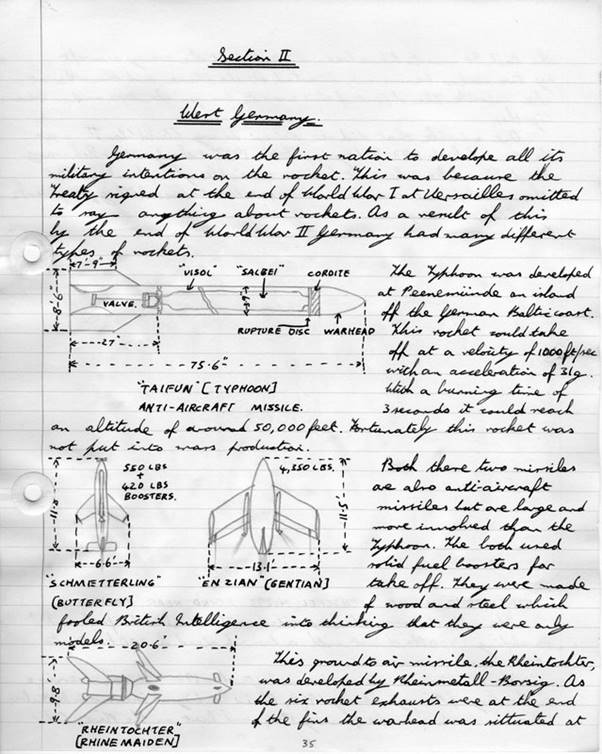 Section II
West Germany.
Germany was the first nation to develope all its
military intentions on the rocket. This was because the
Treaty signed at the end of World War I at Versailles omitted
to say anything about rockets. As a result of this
by the end of World War II Germany had many different
types of rockets.
7'-9"
"VISOL" "SALBEI" CORDITE
8'-6"
VALVE.
9"
RUPTURE DISC WARHEAD
27"
75.6"
"TAIFUN" [TYPHOON]
ANTI-AIRCRAFT MISSILE.
The Typhoon was developed
at Peenemünde an island
off the German Baltic coast.
This rocket could take
off at a velocity of 1000 ft/sec
with an acceleration of 31g.
With a burning time of
3 seconds it could reach
an altitude of around 50,000 feet. Fortunately this rocket was
not put into mass production.
550 LBS
420 LBS
BOOSTERS.
11.8'
6.6'
"SCHMETTERLING"
[BUTTERFLY]
4,350 LBS.
11.5'
13.1'
"ENZIAN" [GENTIAN]
Both these two missiles
are also anti-aircraft
missiles but are large and
more involved than the
Typhoon. The both used
solid fuel boosters for
take off. They were made
of wood and steel which
fooled British Intelligence into thinking that they were only
models.
20.6'
9.8'
"RHEINTOCHTER"
[RHINE MAIDEN]
This ground to air missile, the Rheintochter,
was developed by Rheinmetall-Borsig. As
the six rocket exhausts were at the end
of the fins the warhead was sittuated at
35